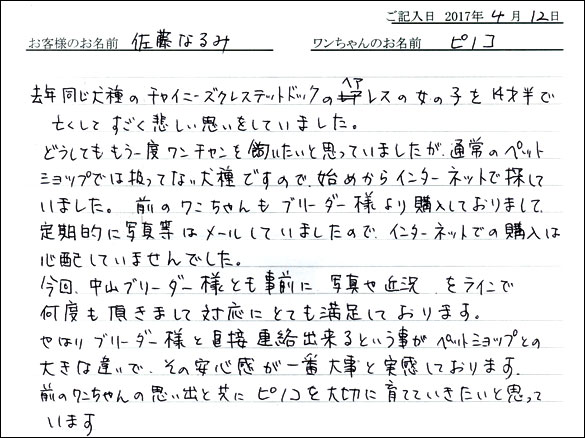 ご記入日 2017年 4月 12日
お客様のお名前 佐藤なるみ ワンちゃんのお名前 ピノコ
去年同じ犬種のチャイニーズクレステットドックのヘアレスの女の子を14才半で
亡くしてすごく悲しい思いをしていました。
どうしてももう一度ワンチャンを飼いたいと思っていましたが、通常のペット
ショップでは扱ってない犬種ですので、始めからインターネットで探して
いました。 前のワンちゃんもブリーダー様より購入しておりまして、
定期的に写真等はメールしていましたので、インターネットでの購入は
心配していませんでした。
今回、中山ブリーダー様とも事前に 写真や近況 をラインで
何度も頂きまして対応にとても満足しております。
やはりブリーダー様と直接連絡出来るという事がペットショップとの
大きな違いで、その安心感が一番大事と実感しております。
前のワンちゃんの思い出と共にピノコを大切に育てていきたいと思って
います